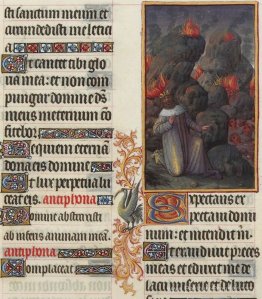 sti saccum meum et
circundedisti me leticia
Ut cantet tibi glo
ria mea: et non com
pungar domine ds
meus in eternum con
fitebor tibi.
Requiem eternam
dona eis domine
Et lux perpetua lu
ceat eis. antiphona
Domine abstraxisti
ab inferis animam meam.
antiphona
Complaceat
Expectans ex
pectavi domi
num: et intendit m
Et exaudivit preces
meas et eduxit me de
lacu miserie et de luto